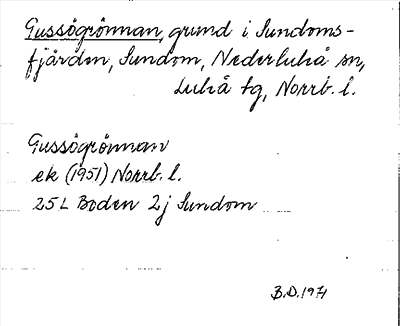 Gussögrönnan, grund i Sundoms-
fjärden, Sundom, Nederluleå sn,
Luleå tg, Norrb. l.
Gussögrönnan
ek (1951) Norrb. l.
25 L Boden 2j Sundom
B.D. 1971